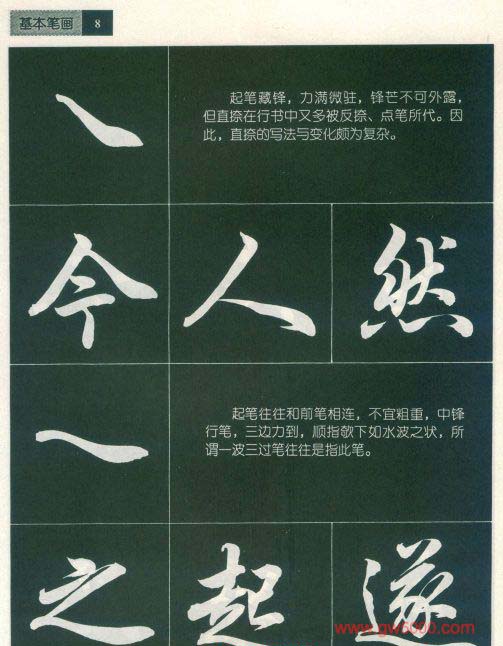 基本笔画 8
起笔藏锋，力满微驻，锋芒不可外露，
但直捺在行书中又多被反捺、点笔所代。因
此，直捺的写法与变化颇为复杂。
今 人 然
起笔往往和前笔相连，不宜粗重，中锋
行笔，三边力到，顺指欹下如水波之状，所
谓一波三过笔往往是指此笔。
之 起 遂
www.gw6000.com